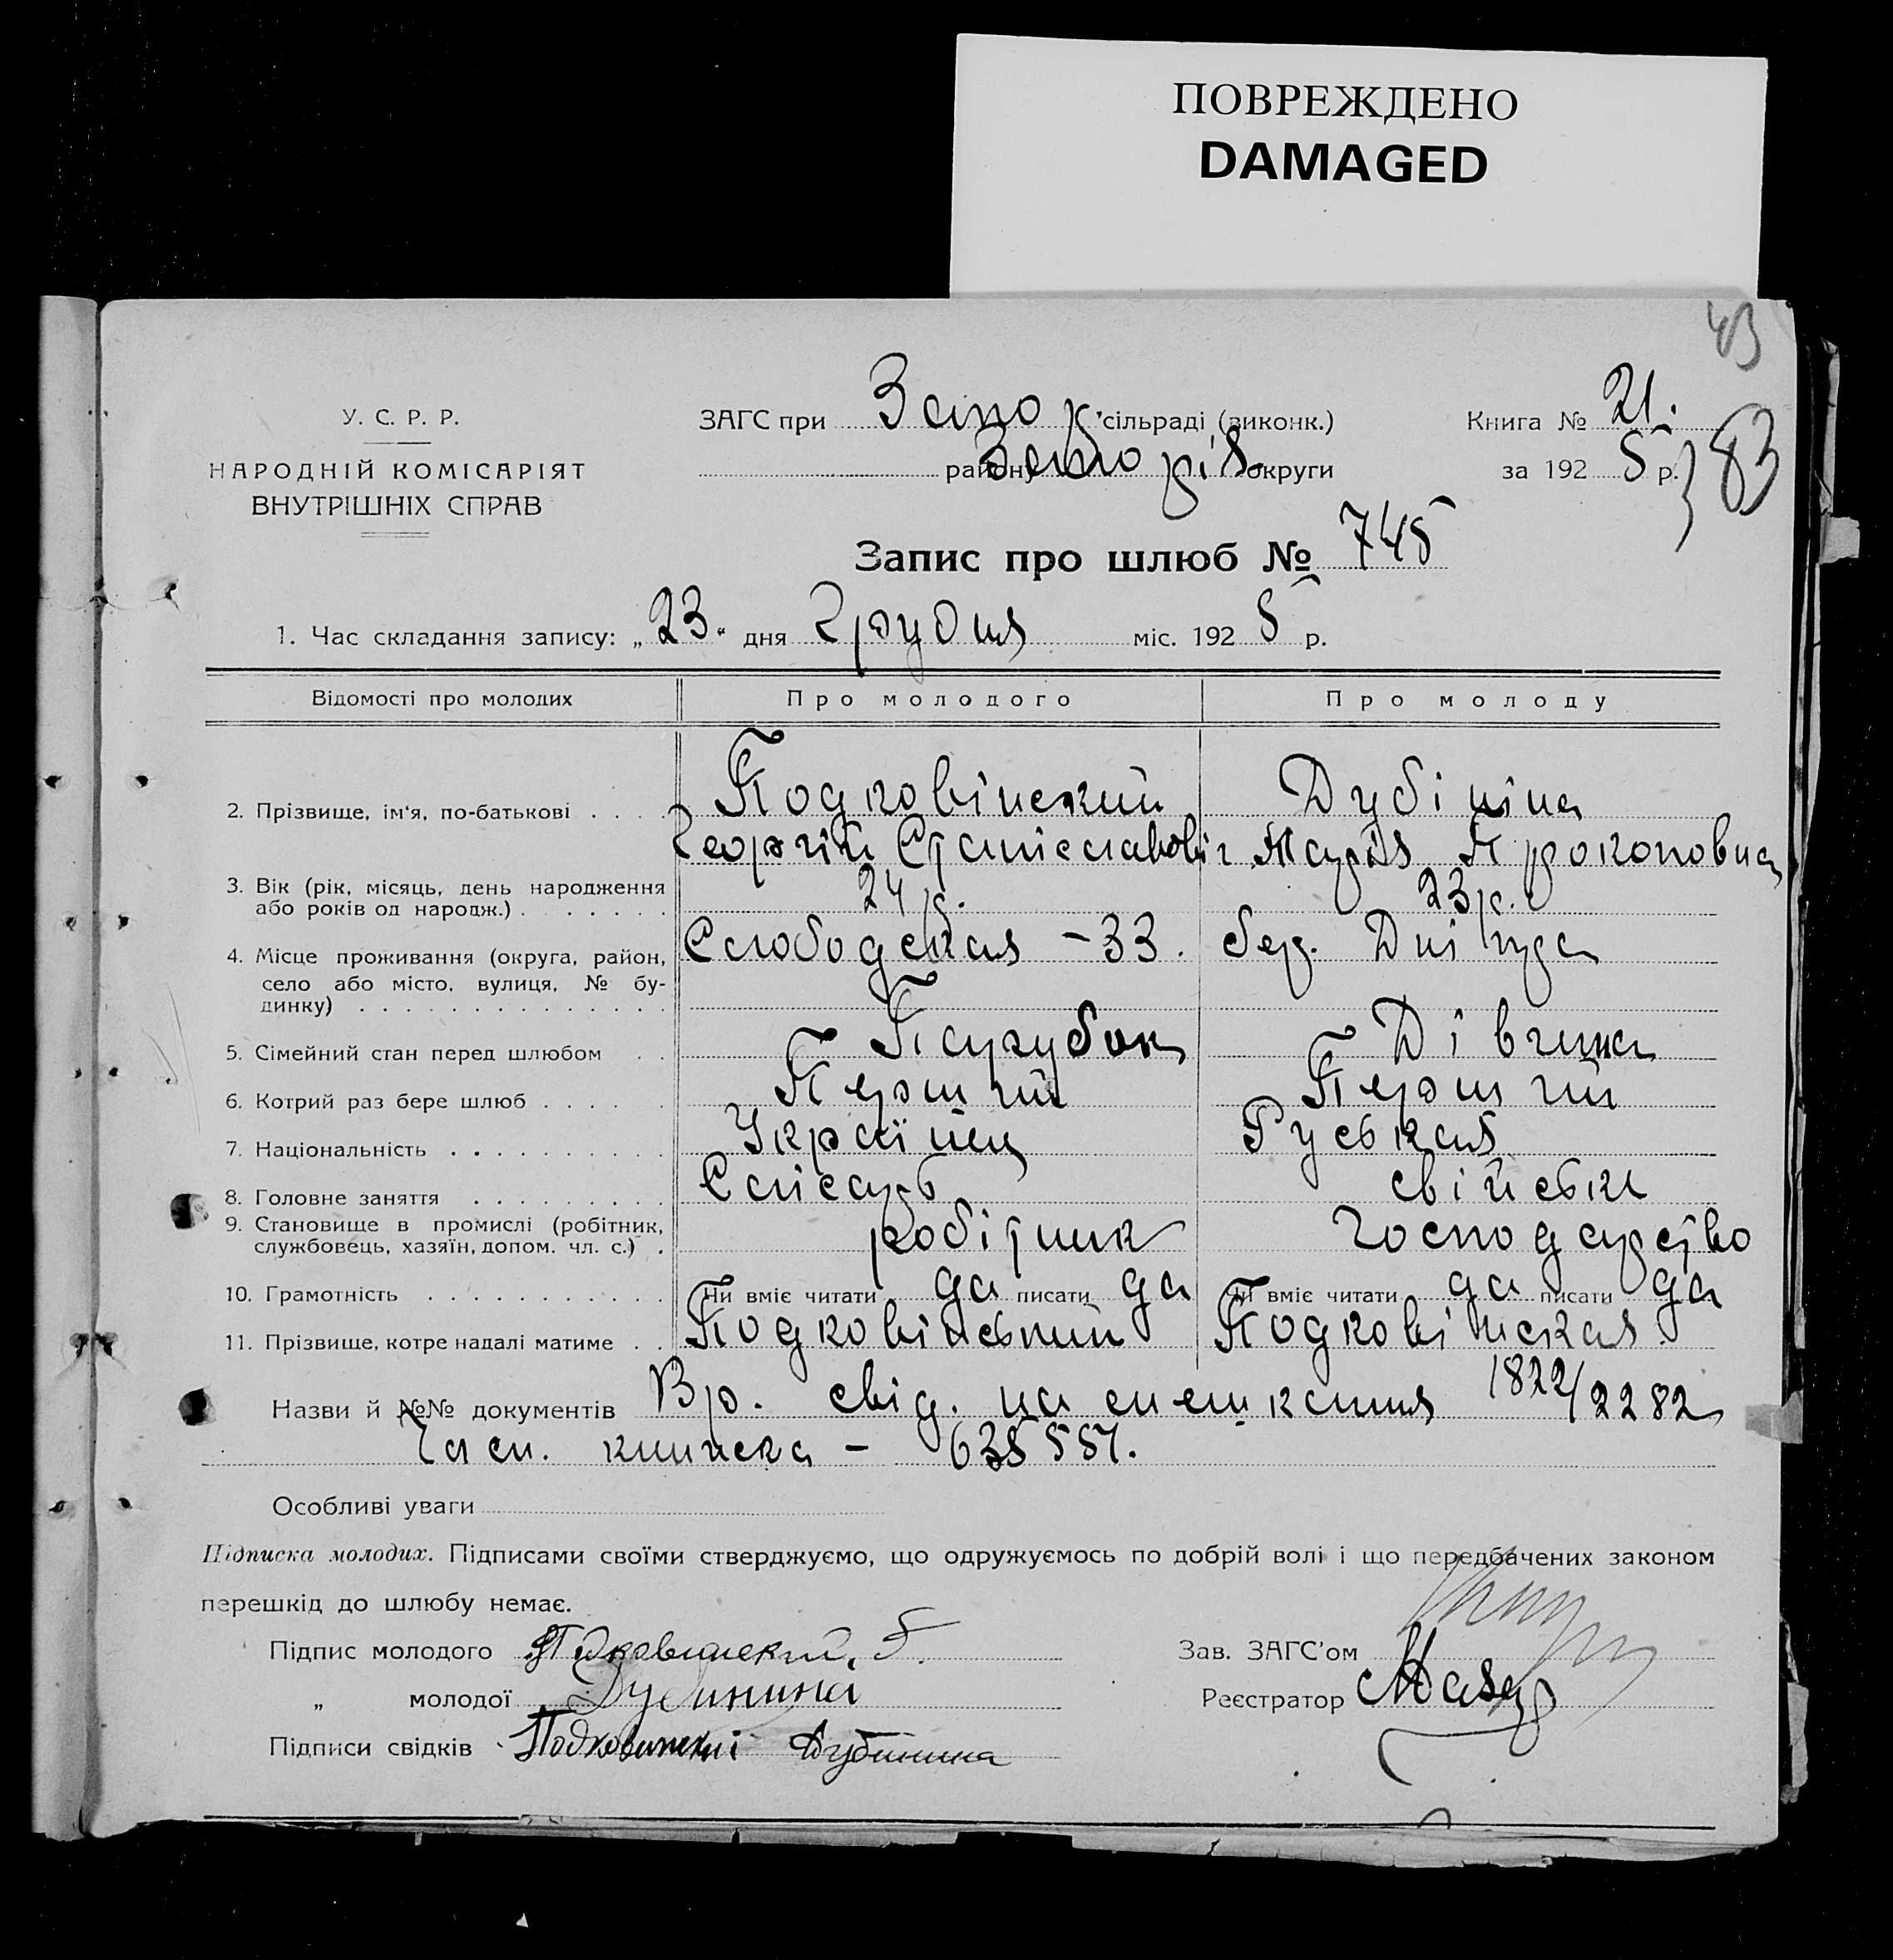 ПОВРЕЖДЕНО
DAMAGED
43
У. С. Р. Р.
НАРОДНІЙ КОМІСАРІЯТ
ВНУТРІШНІХ СПРАВ
ЗАГС при Запор. сільраді (виконк.)
району Запоріз. округи
Книга № 21.
за 1925 р.
83
Запис про шлюб № 745
1. Час складання запису: „23“ дня Грудня міс. 1925 р.
Відомості про молодих Про молодого Про молоду
2. Прізвище, ім‘я, по-батькові . . . . Подковінский Дубініна
Георгій Станіславовіч Марія Прокоповна
3. Вік (рік, місяць, день народження або років од народж.) . . . . . . . 24 р. 23 р.
4. Місце проживання (округа, район, село або місто, вулиця, № будинку) . . . . . . . . . . . . . . Слободская – 33. бер. Дніпра
5. Сімейний стан перед шлюбом . . Парубок Дівчина
6. Котрий раз бере шлюб . . . . . Перший Перший
7. Національність . . . . . . . . . . Українец Руськая
8. Головне заняття . . . . . . . . . Слісарь свійськи
9. Становище в промислі (робітник, службовець, хазяїн, допом. чл. с.) . робітник господарство
10. Грамотність . . . . . . . . . . . Чи вміє читати да писати да Чи вміє читати да писати да
11. Прізвище, котре надалі матиме . . Подковінський Подковінская
Назви й №№ документів Вр. свід. на мешкання 1822/2282
книжка – 635557.
Особливі уваги
Підписка молодих. Підписами своїми стверджуємо, що одружуємось по добрій волі і що передбачених законом
перешкід до шлюбу немає.
Підпис молодого Подковинский.
„ молодої Дубинина
Підписи свідків Подковинский Дубинина
Зав. ЗАГС’ом
Реєстратор